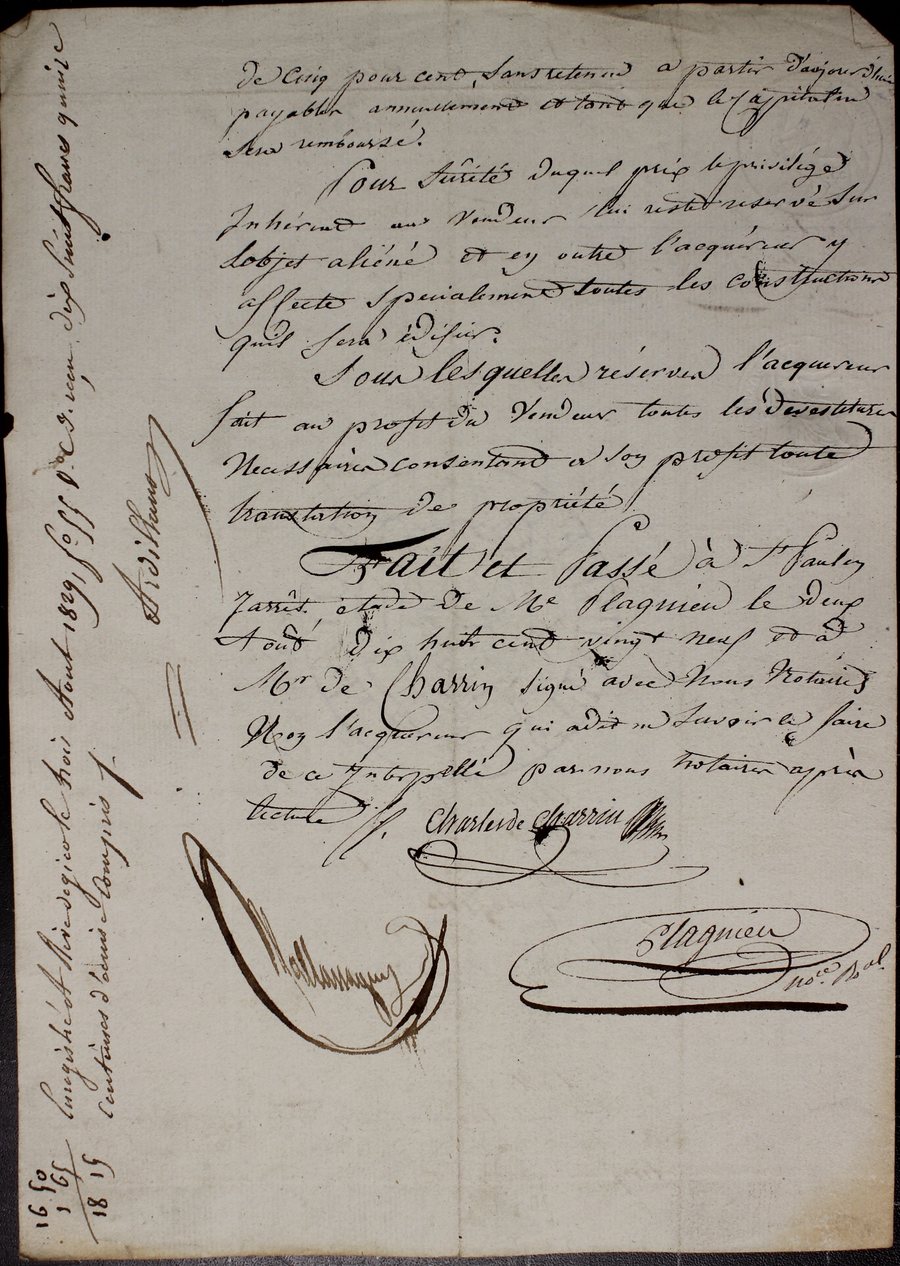 de cinq pour cent, sans retenue a partir d'aujourd'hui
payables annuellement et tant que le Cappital en
sera remboursé.
Pour Sûrité duquel prix le privilége
Inhérent au Vendeur lui reste reservé sur
l'objet aliéné et en outre l'acquéreur y
affecte specialement toutes les constructions
quil fera édifier.
Sous lesquelles réserves l'acquereur
fait au profit du Vendeur toutes les devestitures
Necessaires consentant a son profit toute
translation de propriété
Fait et Passé à St Paul en
Jarrêt, étude de Me Plagnieu le deux
Août dix huit cent vingt neuf et a
Mr de Charrin signé avec Nous Notaires
Non l'acquereur qui a dit ne Savoir le faire
de ce Interpellé par nous notaires après
lecture
Charles de Charrin
Plagnieu
nore Roal
Enregistré à Rive de gier le trois Aout 1829, fo 55 Vo C 9. reçu dix huit francs quinze
centimes dixieme Compris
16 50
1 65
18 15